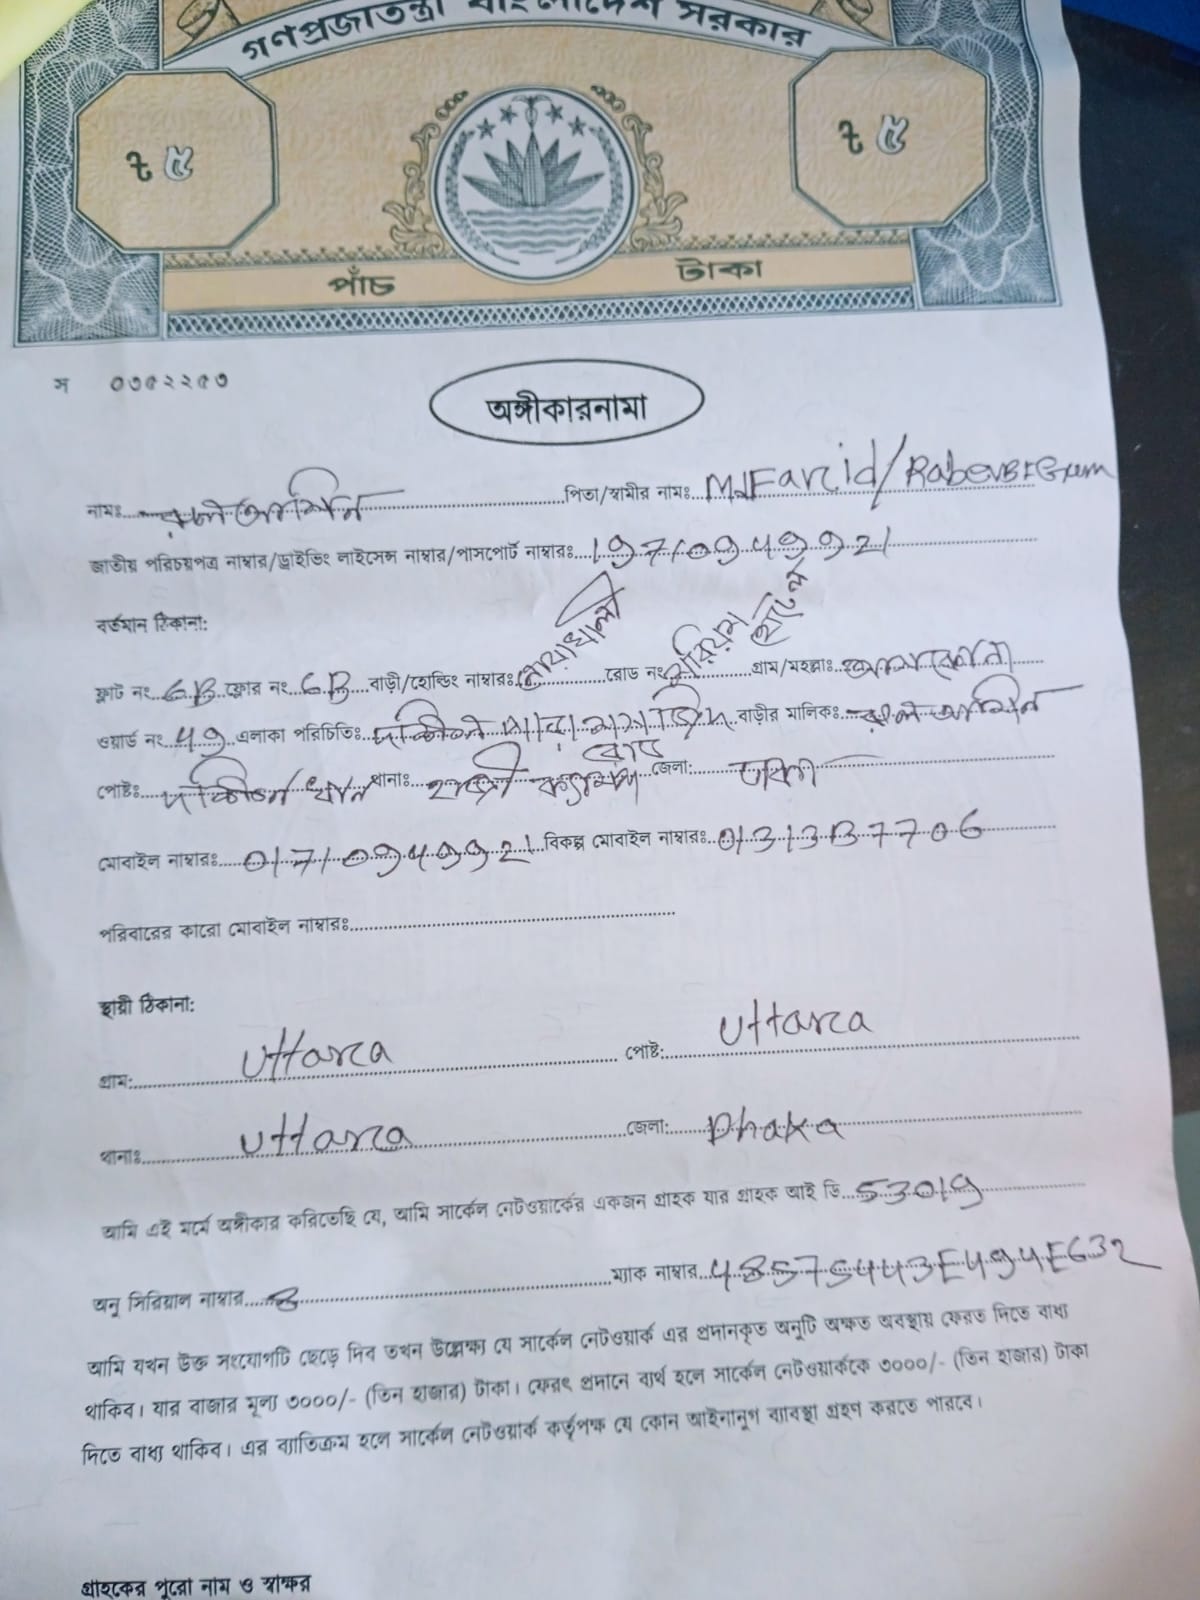 গণপ্রজাতন্ত্রী বাংলাদেশ সরকার
৳ ৫ ৳ ৫
পাঁচ টাকা
স ০৩৫২২৫৩
অঙ্গীকারনামা
নামঃ পিতা/স্বামীর নামঃ Md Farid/
জাতীয় পরিচয়পত্র নাম্বার/ড্রাইভিং লাইসেন্স নাম্বার/পাসপোর্ট নাম্বারঃ 19710949921
বর্তমান ঠিকানা:
ফ্লাট নং 6B ফ্লোর নং 6B বাড়ী/হোল্ডিং নাম্বারঃ নোয়াখালী রোড নং গ্রাম/মহল্লাঃ
ওয়ার্ড নং 49 এলাকা পরিচিতিঃ বাড়ীর মালিকঃ
পোষ্টঃ থানাঃ জেলা:
মোবাইল নাম্বারঃ 01710949921 বিকল্প মোবাইল নাম্বারঃ
পরিবারের কারো মোবাইল নাম্বারঃ
স্থায়ী ঠিকানা:
গ্রাম: Uttara পোষ্ট: Uttara
থানাঃ Uttara জেলা: Dhaka
আমি এই মর্মে অঙ্গীকার করিতেছি যে, আমি সার্কেল নেটওয়ার্কের একজন গ্রাহক যার গ্রাহক আই ডি 53019
অনু সিরিয়াল নাম্বার ম্যাক নাম্বার 48575443E494E632
আমি যখন উক্ত সংযোগটি ছেড়ে দিব তখন উল্লেক্ষ্য যে সার্কেল নেটওয়ার্ক এর প্রদানকৃত অনুটি অক্ষত অবস্থায় ফেরত দিতে বাধ্য
থাকিব। যার বাজার মূল্য ৩০০০/- (তিন হাজার) টাকা। ফেরৎ প্রদানে ব্যর্থ হলে সার্কেল নেটওয়ার্ককে ৩০০০/- (তিন হাজার) টাকা
দিতে বাধ্য থাকিব। এর ব্যাতিক্রম হলে সার্কেল নেটওয়ার্ক কর্তৃপক্ষ যে কোন আইনানুগ ব্যাবস্থা গ্রহণ করতে পারবে।
গ্রাহকের পুরো নাম ও স্বাক্ষর